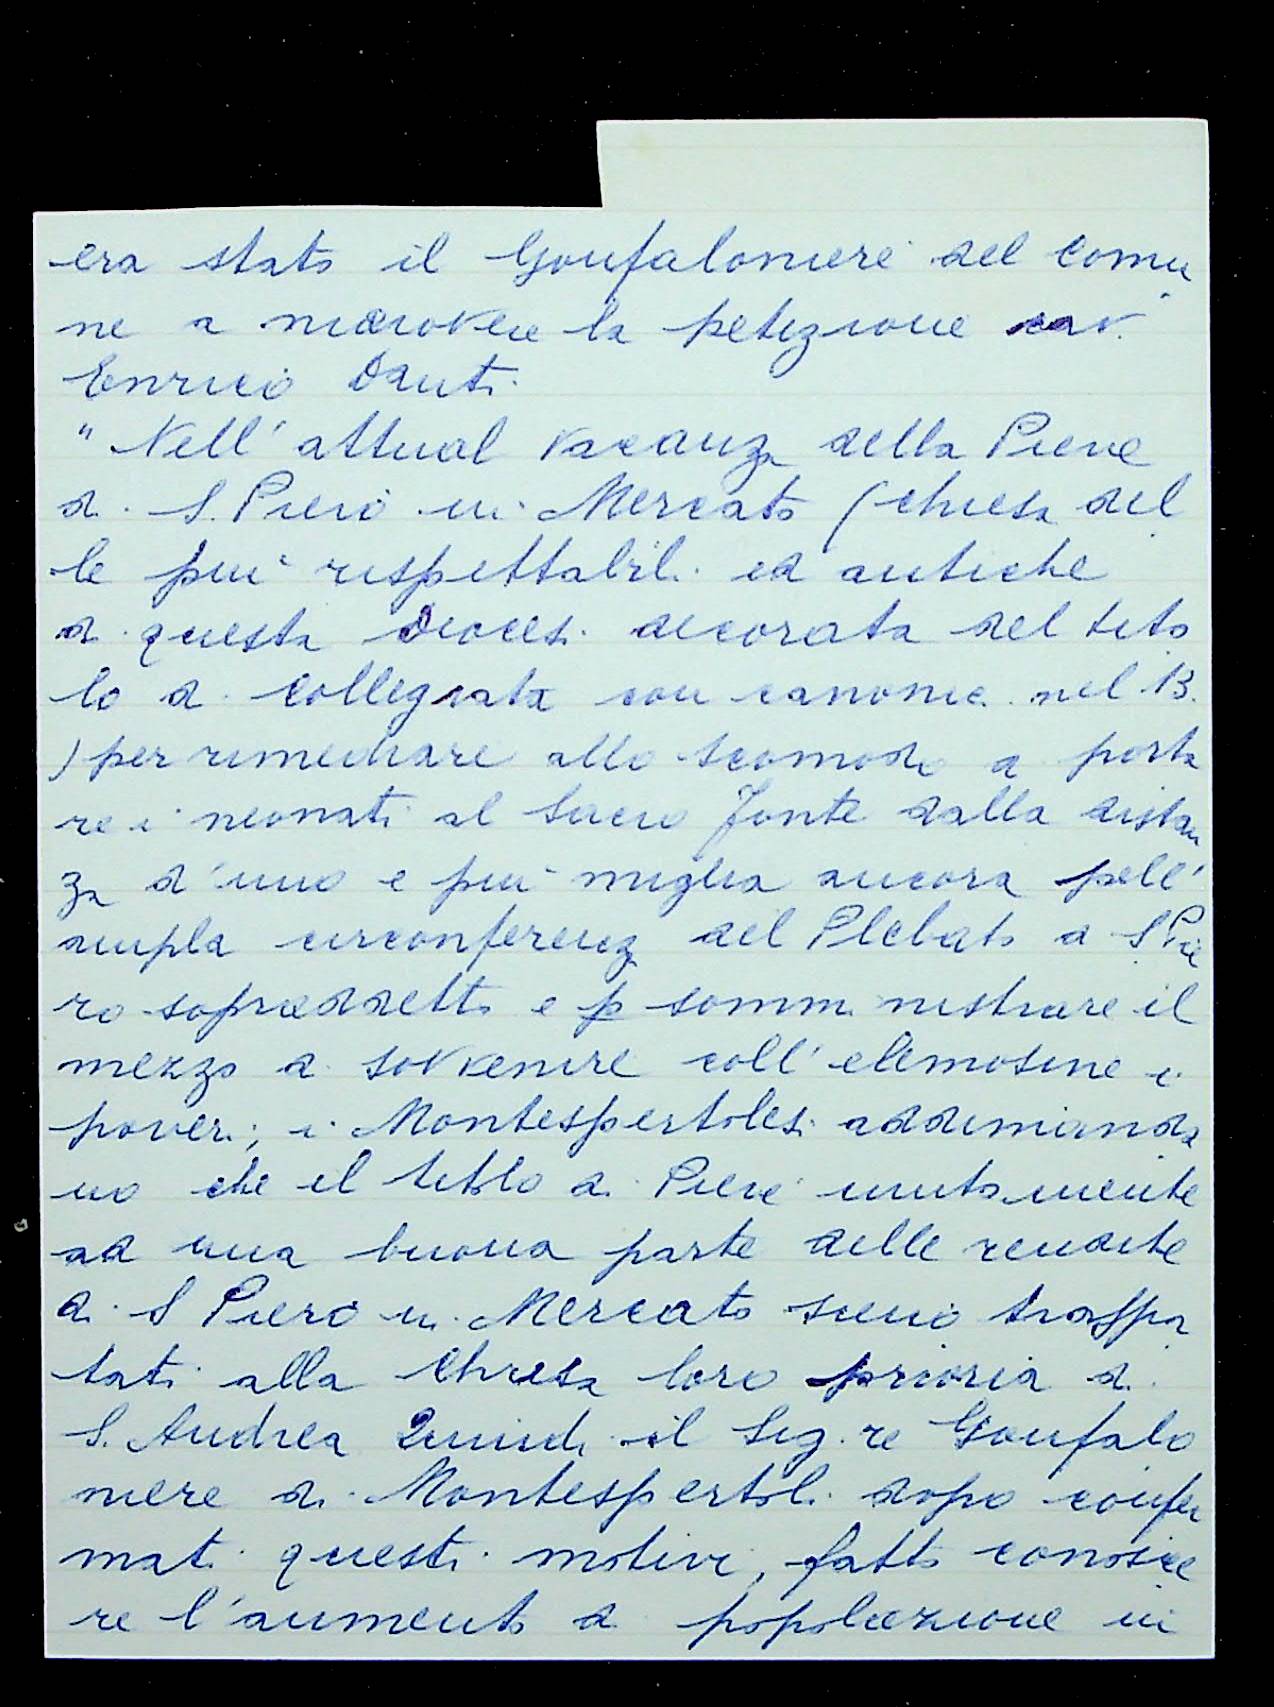 era stato il Gonfaloniere del Comu
ne a muovere la petizione cav.
Enrico Danti.
"Nell'attual vacanza della Pieve
di S. Piero in Mercato (chiesa del
le più rispettabili ed antiche
di questa Diocesi decorata del tito
lo di Collegiata con canonici nel 13.
) per rimediare allo scomodo a porta
re i neonati al Sacro Fonte dalla distan
za d'uno e più miglia ancora pell'
ampla circonferenza del Plebato a S Pie
ro sopraddetto e p somministrare il
mezzo di sovvenire coll'elemosine i
poveri; i Montespertolesi addimanda
no che il titolo di Pieve unitamente
ad una buona parte delle rendite
di S Piero in Mercato sieno traspor
tati alla Chiesa loro prioria di
S. Andrea Quindi il Sig.re Gonfalo
niere di Montespertoli dopo confer
mati questi motivi, fatto conosce
re l'aumento di popolazione in